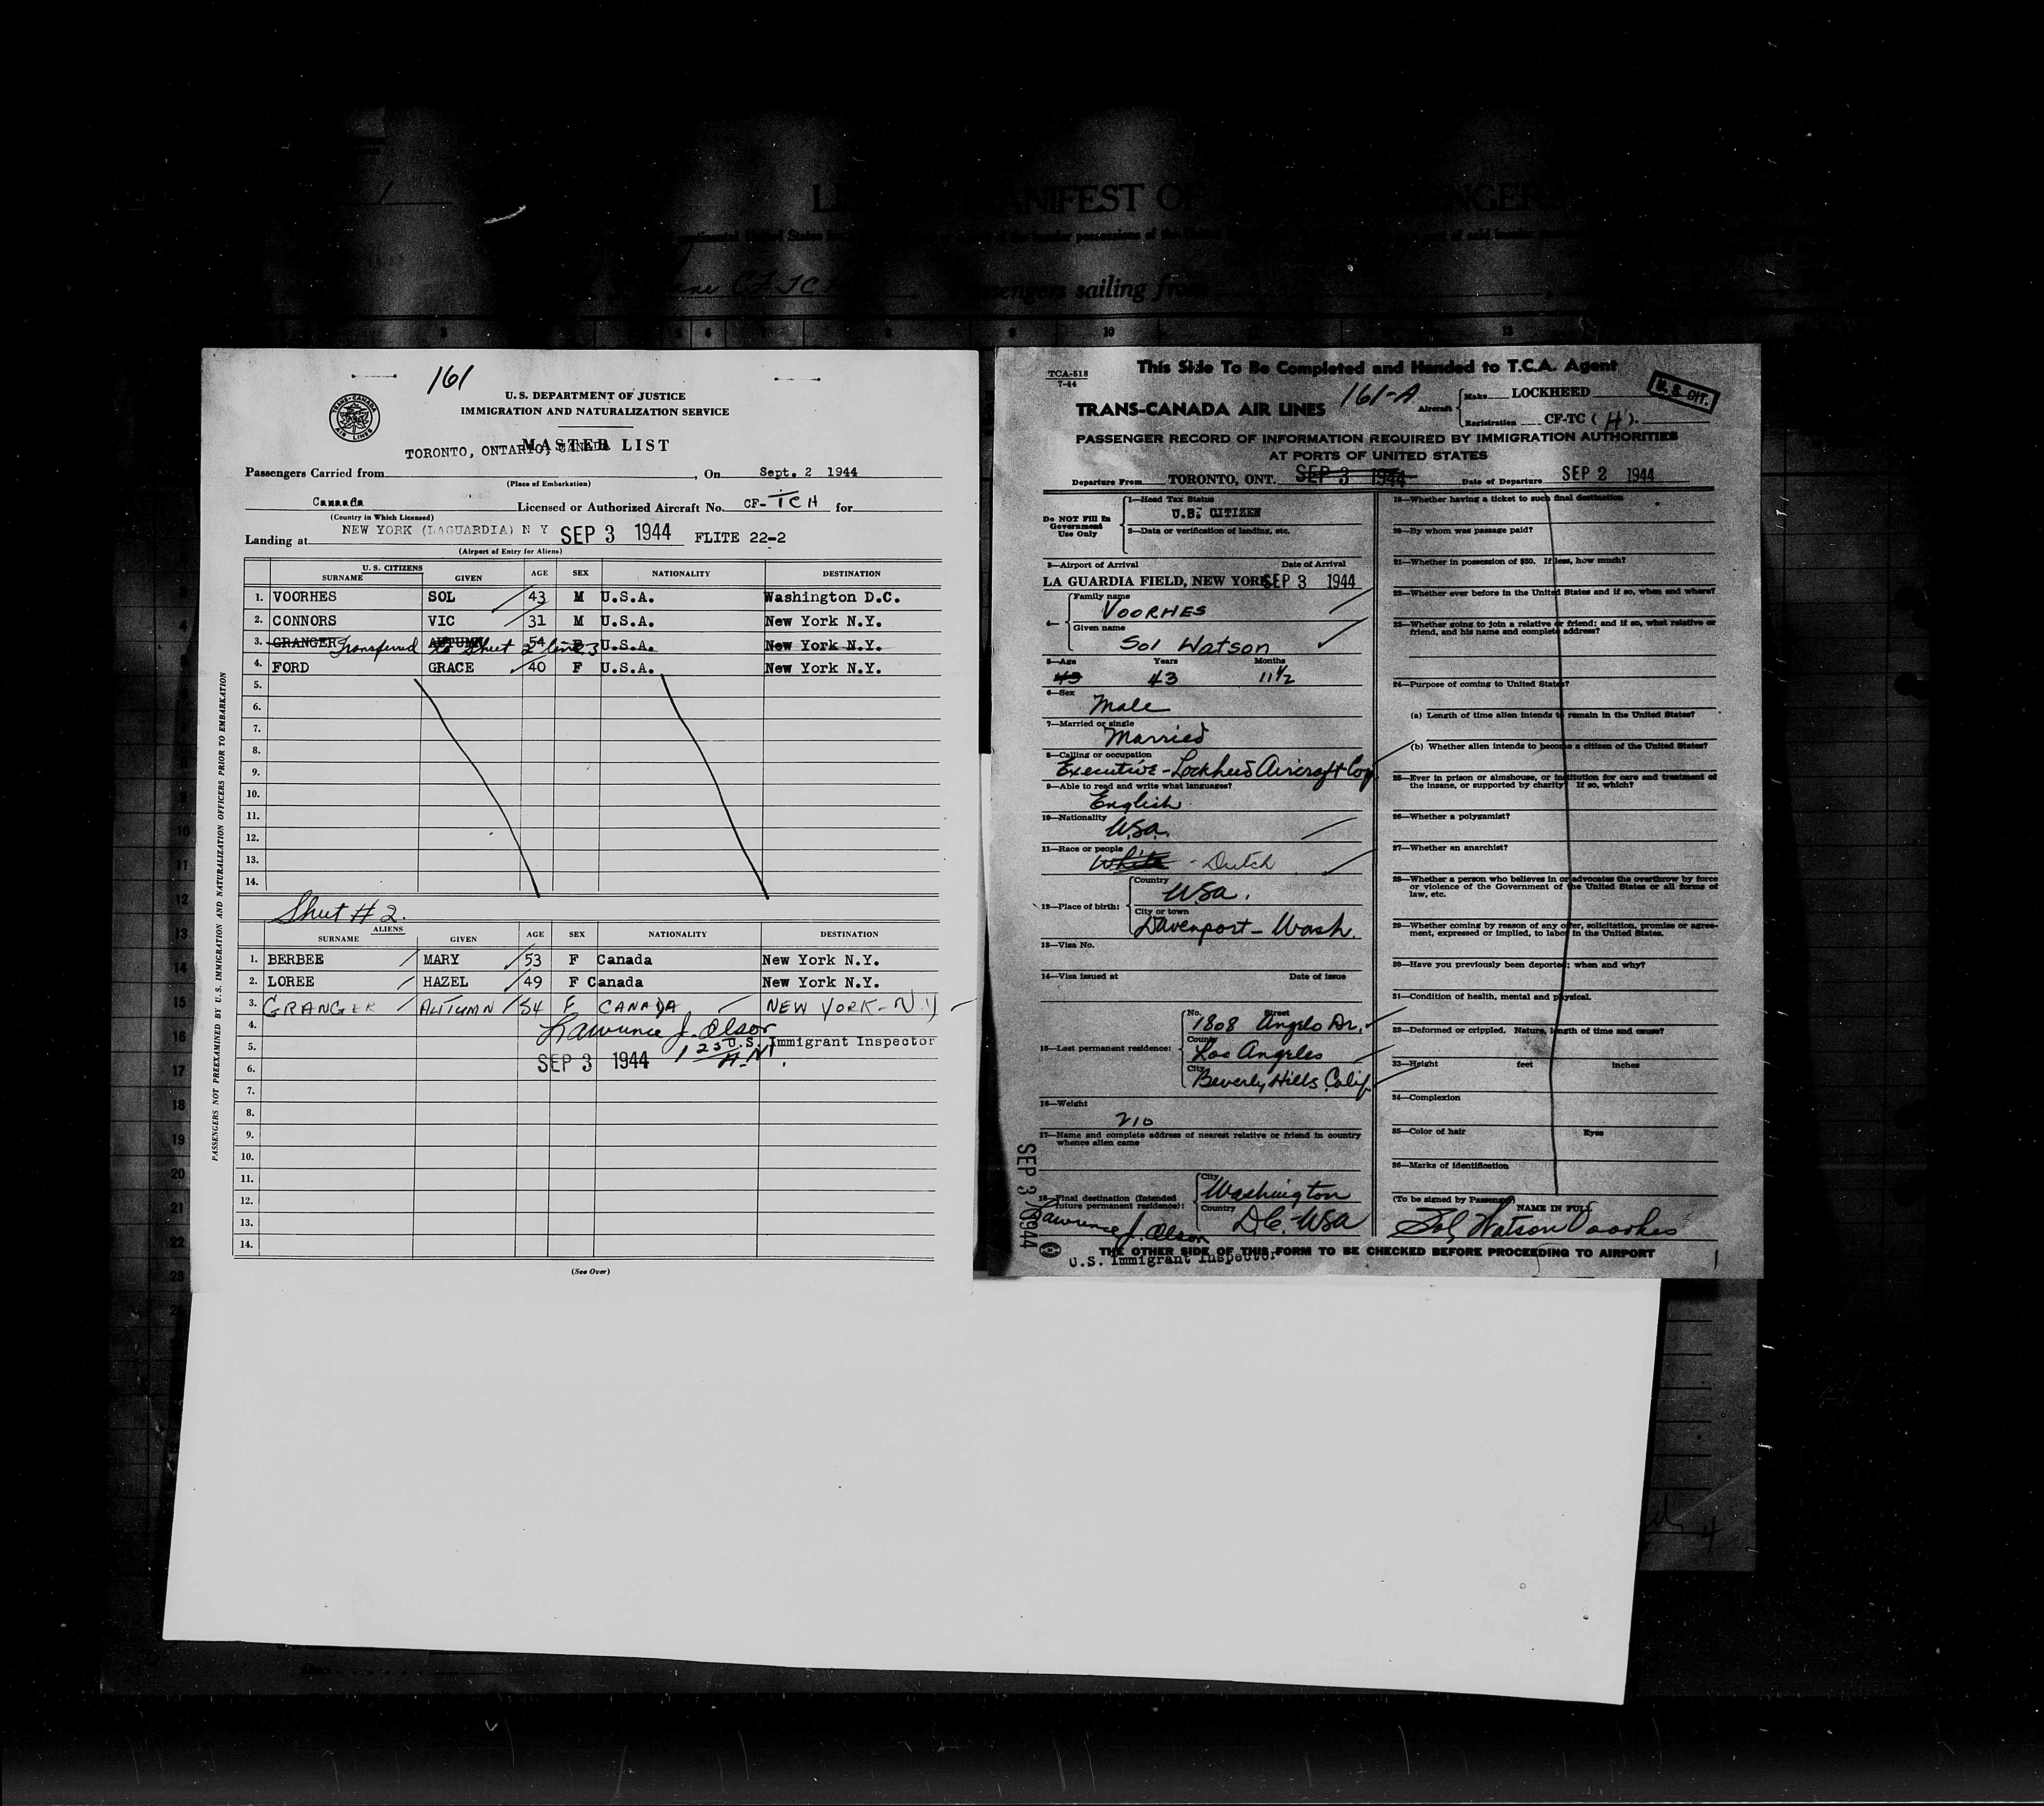 MANIFEST OF
sengers sailing from
161
TRANS-CANADA AIR LINES
U. S. DEPARTMENT OF JUSTICE
IMMIGRATION AND NATURALIZATION SERVICE
MASTER LIST
TORONTO, ONTARIO, CANADA
Passengers Carried from , On Sept. 2 1944
(Place of Embarkation)
Canaada Licensed or Authorized Aircraft No. CF-TCH for
(Country in Which Licensed)
NEW YORK (LAGUARDIA) N Y SEP 3 1944 FLITE 22-2
Landing at
(Airport of Entry for Aliens)
U. S. CITIZENS
SURNAME GIVEN AGE SEX NATIONALITY DESTINATION
1. VOORHES SOL 43 M U.S.A. Washington D.C.
2. CONNORS VIC 31 M U.S.A. New York N.Y.
3. GRANGER AUTUMN 54 F U.S.A. New York N.Y.
Transferred to Sheet 2 line 3
4. FORD GRACE 40 F U.S.A. New York N.Y.
5.
6.
7.
8.
9.
10.
11.
12.
13.
14.
Sheet # 2.
ALIENS
SURNAME GIVEN AGE SEX NATIONALITY DESTINATION
1. BERBEE MARY 53 F Canada New York N.Y.
2. LOREE HAZEL 49 F Canada New York N.Y.
3. GRANGER AUTUMN 54 F CANADA NEW YORK-N.Y
4.
Lawrence J. Olson
5. U.S. Immigrant Inspector
SEP 3 1944
6.
7.
8.
9.
10.
11.
12.
13.
14.
(See Over)
PASSENGERS NOT PREEXAMINED BY U.S. IMMIGRATION AND NATURALIZATION OFFICERS PRIOR TO EMBARKATION
This Side To Be Completed and Handed to T.C.A. Agent
TCA-518
7-44
161-A
U. S. CIT.
TRANS-CANADA AIR LINES Aircraft Make LOCKHEED
Registration CF-TC (H).
PASSENGER RECORD OF INFORMATION REQUIRED BY IMMIGRATION AUTHORITIES
AT PORTS OF UNITED STATES
Departure From TORONTO, ONT. SEP 3 1944 Date of Departure SEP 2 1944
Do NOT Fill In
Government
Use Only
1—Head Tax Status
U.S. CITIZEN
2—Data or verification of landing, etc.
3—Airport of Arrival Date of Arrival
LA GUARDIA FIELD, NEW YORK SEP 3 1944
4— Family name
VOORHES
Given name
Sol Watson
5—Age Years Months
43 43 11½
6—Sex
Male
7—Married or single
Married
8—Calling or occupation
Executive - Lockheed Aircraft Corp
9—Able to read and write what languages?
English
10—Nationality
USA.
11—Race or people
White - Dutch
12—Place of birth: Country
USA.
City or town
Davenport - Wash
13—Visa No.
14—Visa issued at Date of issue
15—Last permanent residence: No. Street
1808 Angelo Dr.
County
Los Angeles
City
Beverly Hills Calif
16—Weight
210
17—Name and complete address of nearest relative or friend in country
whence alien came
18—Final destination (Intended
future permanent residence):
City
Washington
Country
DC. USA
Lawrence J. Olson
U.S. Immigrant Inspector
SEP 3 1944
19—Whether having a ticket to such final destination
20—By whom was passage paid?
21—Whether in possession of $50. If less, how much?
22—Whether ever before in the United States and if so, when and where?
23—Whether going to join a relative or friend; and if so, what relative or
friend, and his name and complete address?
24—Purpose of coming to United States?
(a) Length of time alien intends to remain in the United States?
(b) Whether alien intends to become a citizen of the United States?
25—Ever in prison or almshouse, or institution for care and treatment of
the insane, or supported by charity? If so, which?
26—Whether a polygamist?
27—Whether an anarchist?
28—Whether a person who believes in or advocates the overthrow by force
or violence of the Government of the United States or all forms of
law, etc.
29—Whether coming by reason of any offer, solicitation, promise or agree-
ment, expressed or implied, to labor in the United States.
30—Have you previously been deported; when and why?
31—Condition of health, mental and physical.
32—Deformed or crippled. Nature, length of time and cause?
33—Height feet inches
34—Complexion
35—Color of hair Eyes
36—Marks of identification
(To be signed by Passenger)
NAME IN FULL
Sol Watson Voorhes
THE OTHER SIDE OF THIS FORM TO BE CHECKED BEFORE PROCEEDING TO AIRPORT